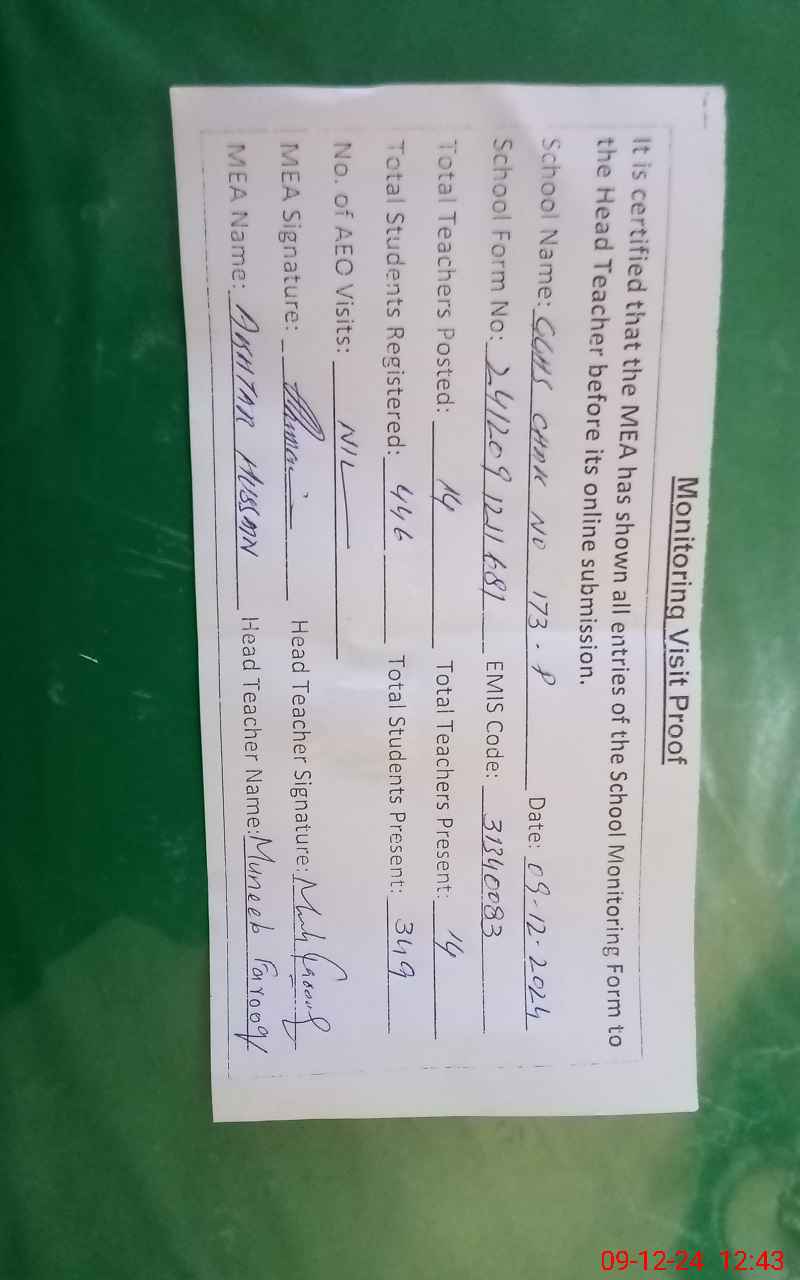 Monitoring Visit Proof
It is certified that the MEA has shown all entries of the School Monitoring Form to
the Head Teacher before its online submission.
School Name: GGHS CHAK NO 173-P Date: 09-12-2024
School Form No: EMIS Code: 31340083
Total Teachers Posted: 14 Total Teachers Present: 14
Total Students Registered: 446 Total Students Present: 349
No. of AEO Visits: NIL
MEA Signature: Head Teacher Signature:
MEA Name: AKHTAR HUSSAIN Head Teacher Name: Muneeb Farooq
09-12-24 12:43